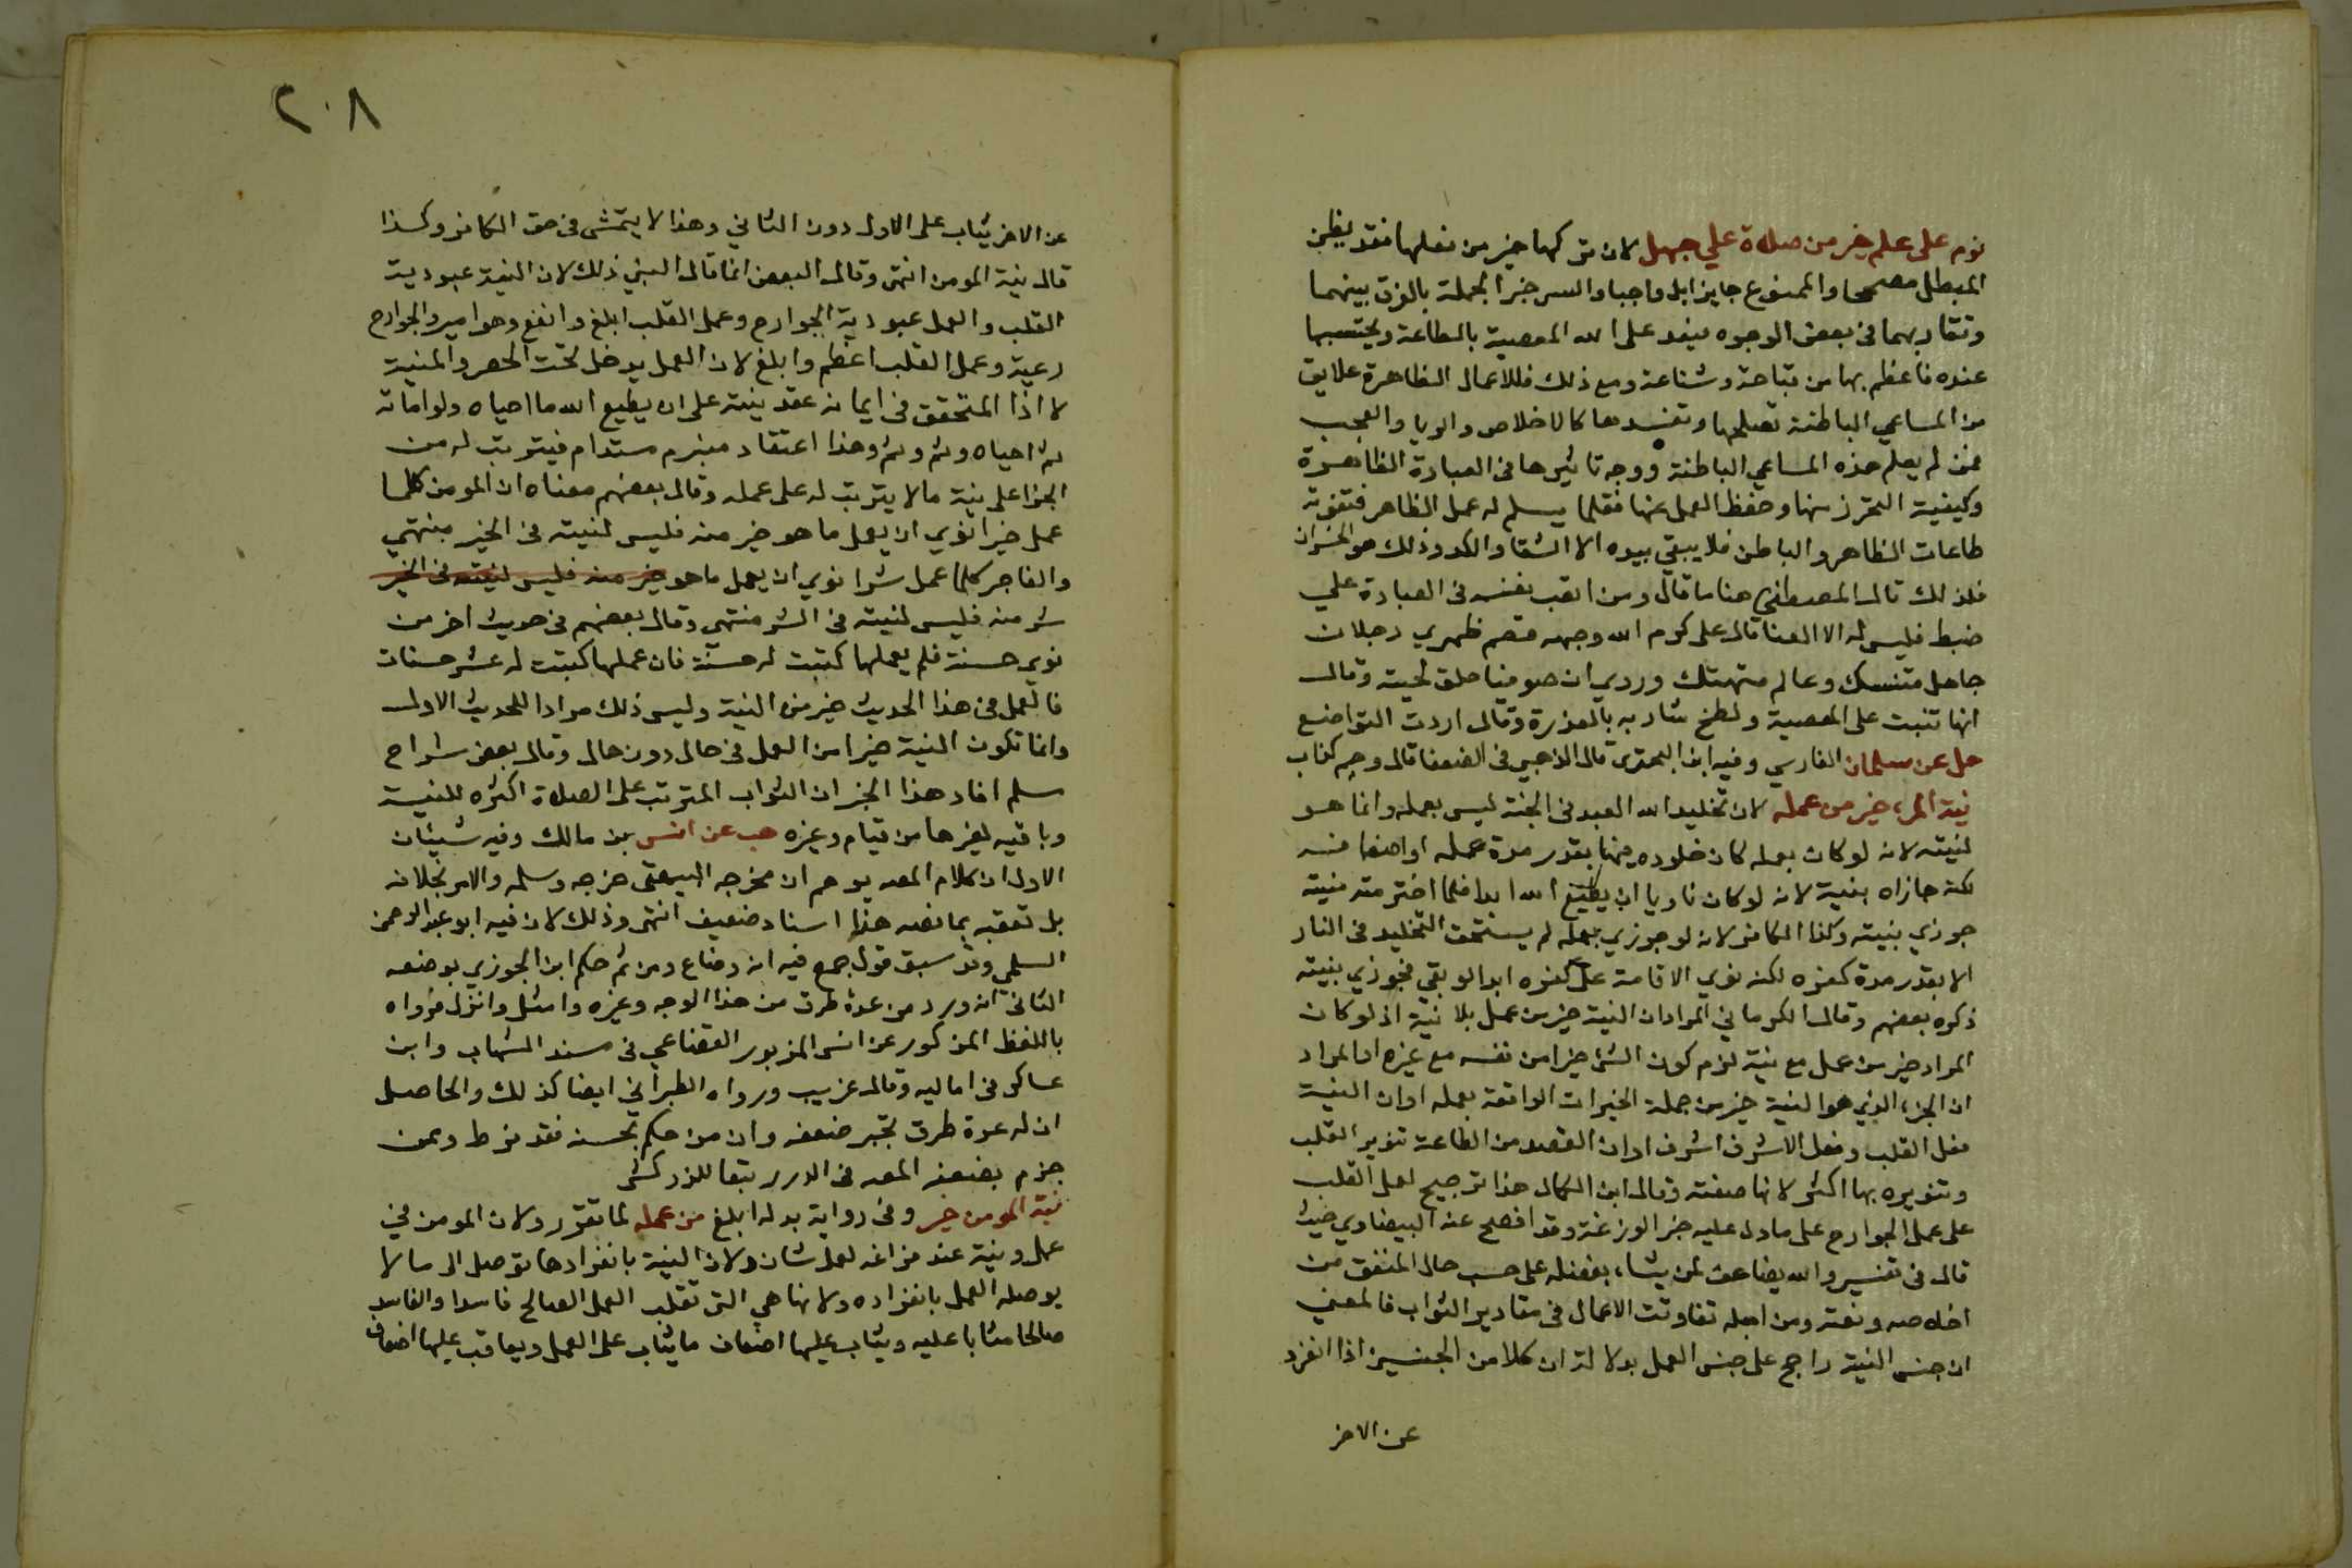 نوم على علم خير من صلاة علي جهل لان تركها خير من فعلها فقد يظن
المبطل مصححا والممنوع جايزا بل واجبا والسر خبرا لجملة بالفرق بينهما
وتقاربهما في بعض الوجوه فيعد على الله المعصية بالطاعة ويحتسبها
عنده فاعظم بها من قباحة وشناعة ومع ذلك فللاعمال الظاهرة علايق
من المساعي الباطنة تصلحها وتفسدها كالاخلاص والريا والعجب
فمن لم يعلم هذه المساعي الباطنة ووجه تاثيرها في العبادة الظاهرة
وكيفية التحرز منها وحفظ العمل عنها فقلما يسلم له عمل الظاهر فتفوته
طاعات الظاهر والباطن فلا يبقي بيده الا الشقا والكد وذلك هو الخسران
فلذلك قال المصطفي هنا ما قال ومن اتعب نفسه في العبادة علي
ضبط فليس له الا العنا قال على كرم الله وجهه قصم ظهري رجلان
جاهل متنسك وعالم متهتك وروي ان صوفيا حلق لحيته وقال
انها تنبت على المعصية ولطخ شاربه بالعذرة وقال اردت التواضع
حل عن سلمان الفارسي وفيه ابو البحتري قال الذهبي في الضعفا قال دحيم كذاب
نية المرء خير من عمله لان تخليد الله العبد في الجنة ليس بعمله وانما هو
لنيته لانه لو كان بعمله كان خلوده فيها بقدر مدة عمله او اضعافه
لكنه جازاه بنيته لانه لو كان ناويا ان يطيع الله ابدا فلما اخترمته منيته
جوزي بنيته وكذا الكافر لانه لو جوزي بعمله لم يستحق التخليد في النار
الا بقدر مدة كفره لكنه نوي الاقامة على كفره ابدا لو بقي فجوزي بنيته
ذكره بعضهم وقال الكرماني المراد ان النية خير من عمل بلا نية اذ لو كان
المراد خير من عمل مع نية لزم كون الشئ خيرا من نفسه مع غيره او المراد
ان الجزء الذي هو النية خير من جملة الخيرات الواقعة بعمله او ان النية
فعل القلب وفعل الاشرف اشرف او ان القصد من الطاعة تنوير القلب
وتنويره بها اكثر لانها صفته وقال ابن الكمال هذا ترجيح لعمل القلب
على عمل الجوارح على ما دل عليه خبر الوزغة وقد افصح عنه البيضاوي حيث
قال في تفسير والله يضاعف لمن يشاء بفضله على حسب حال المنفق من
اخلاصه ونعته ومن اجله تفاوتت الاعمال في مقادير الثواب فالمعني
ان جنس النية راجح على جنس العمل بدلالة ان كلا من الجنسين اذا انفرد
عن الاخر
٢٠٨
عن الاخر يثاب على الاول دون الثاني وهذا لا يتمشى في حق الكافر وكذا
قال نية المومن انتهى وقال البعض انما قال النبي ذلك لان النية عبودية
القلب والعمل عبودية الجوارح وعمل القلب ابلغ وانفع وهو امير والجوارح
رعية وعمل القلب اعظم وابلغ لان العمل يدخل تحت الحصر والنية
لا اذا المتحقق في ايمانه عقد نيته على ان يطيع الله ما احياه ولو اماته
ثم احياه وثم وثم وهذا اعتقاد منبرم مستدام فيترتب له من
الجزا على نيته ما لا يترتب له على عمله وقال بعضهم معناه ان المومن كلما
عمل خيرا نوي ان يعمل ما هو خير منه فليس لنيته في الخير منتهي
والفاجر كلما عمل شرا نوي ان يعمل ما هو خير منه فليس لنيته في الخير
شر منه فليس لنيته في الشر منتهى وقال بعضهم في حديث اخر من
نوي حسنة فلم يعملها كتبت له حسنة فان عملها كتبت له عشر حسنات
فالعمل في هذا الحديث خير من النية وليس ذلك مرادا للحديث الاول
وانما تكون النية خيرا من العمل في حال دون حال وقال بعض شراح
مسلم افاد هذا الخبر ان الثواب المترتب على الصلاة اكثره للنية
وباقيه لغيرها من قيام وغيره هب عن انس بن مالك وفيه شيئان
الاول ان كلام المصه يوهم ان مخرجه البيهقي خرجه وسلمه والامر بخلافه
بل تعقبه بما نصه هذا اسناد ضعيف انتهى وذلك لان فيه ابو عبد الرحمن
السلمي وقد سبق قول جمع فيه انه وضاع ومن ثم حكم ابن الجوزي بوضعه
الثاني انه ورد من عدة طرق من هذا الوجه وغيره وامثل وانزل فرواه
باللفظ المذكور عن انس المزبور القضاعي في مسند الشهاب وابن
عساكر في اماليه وقال غريب ورواه الطبراني ايضا كذلك والحاصل
ان له عدة طرق تجبر ضعفه وان من حكم بحسنه فقد فرط وممن
جزم بضعفه المصه في الدرر تبعا للزركشي
نية المومن خير وفي رواية بدله ابلغ من عمله لما تقرر ولان المومن في
عمل ونيته عند فراغه لعمل شان ولان النية بانفرادها توصل الى ما لا
يوصله العمل بانفراده ولانها هي التي تقلب العمل الصالح فاسدا والفاسد
صالحا مثابا عليه ويثاب عليها اضعاف ما يثاب على العمل ويعاقب عليها اضعاف